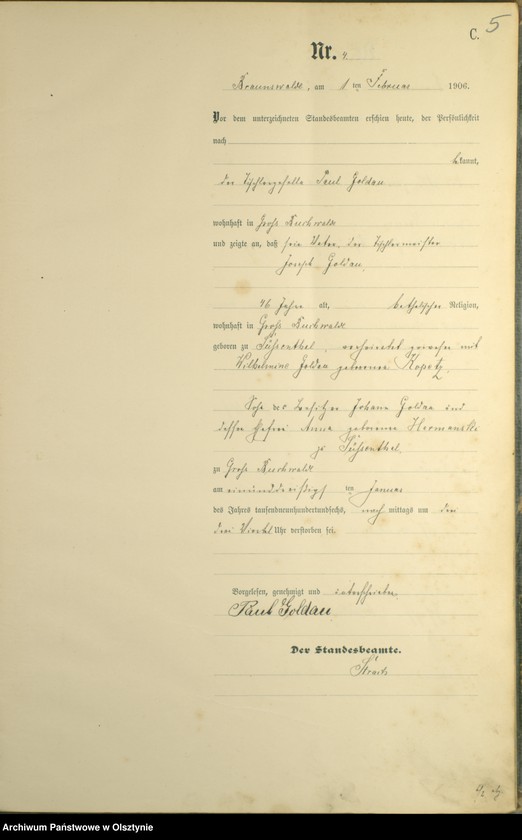 C. 5
Nr. 4
Braunswalde, am 1 ten Februar 1906.
Vor dem unterzeichneten Standesbeamten erschien heute, der Persönlichkeit
nach
bekannt,
der Tischlergeselle Paul Goldau
wohnhaft in Groß Buchwalde
und zeigte an, daß sein Vater, der Tischlermeister
Joseph Goldau,
46 Jahre alt, katholischer Religion,
wohnhaft in Groß Buchwalde
geboren zu Süßenthal, verheiratet gewesen mit
Wilhelmine Goldau geborene
Sohn des Besitzers Johann Goldau und
dessen Ehefrau Anna geborene
zu Süßenthal,
zu Groß Buchwalde
am einunddreißigsten Januar
des Jahres tausendneunhundertundsechs, nach mittags um
drei Viertel Uhr verstorben sei.
Vorgelesen, genehmigt und unterschrieben.
Paul Goldau
Der Standesbeamte.
Archiwum Państwowe w Olsztynie